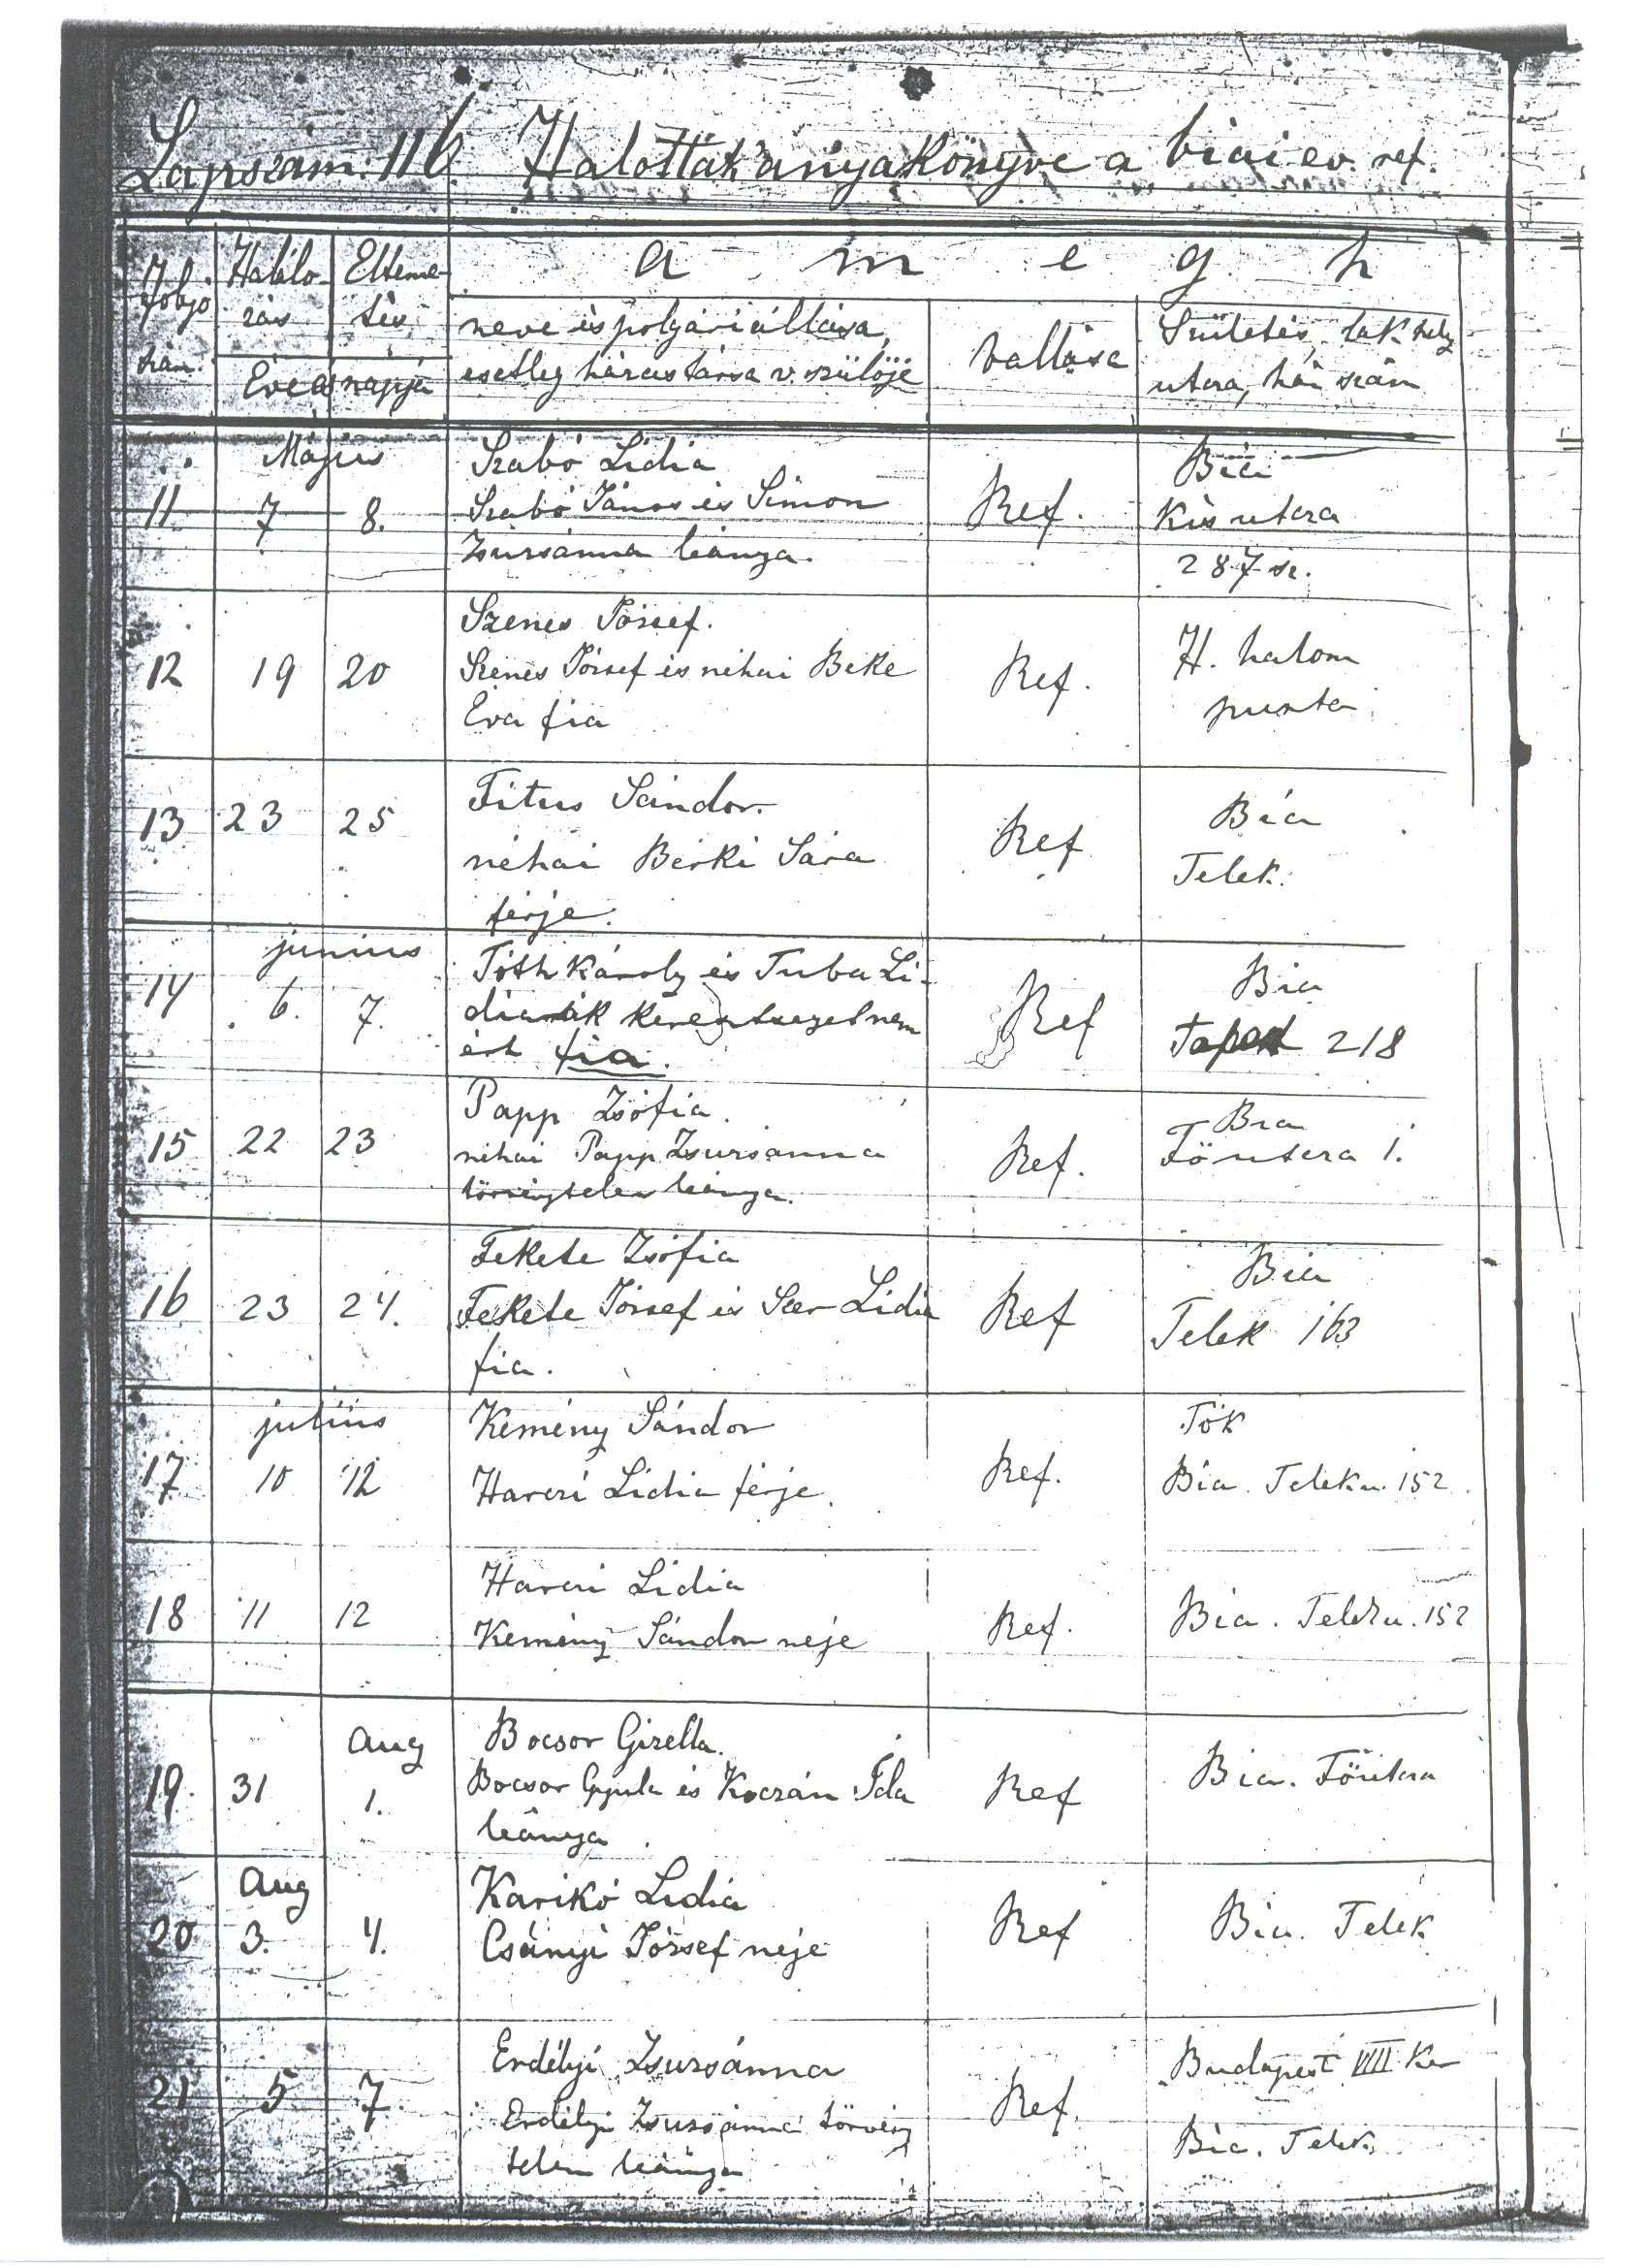 Lapszám: 116. Halottak anyakönyve a biai ev. ref.
a m e g h
Folyó szám. Halálo- Elteme-
zás tés
Éve és napja
neve és polgári állása,
esetleg házastársa v. szülője
vallása
Születés, lak hely
utcza, ház szám
Május
11. 7 8.
Szabó Lídia
Szabó János és Simon
Zsuzsánna leánya.
Ref.
Bia
Kis utcza
287 sz.
12 19 20
Szenes József.
Szenes József és néhai Beke
Éva fia
Ref.
H. halom
puszta
13 23 25
Titus Sándor.
néhai Berki Sára
férje.
Ref
Bia
Telek.
junius
14 6. 7.
Tóth Károly és Tuba Li-
diának keresztséget nem
ért fia.
Ref
Bia
218
15 22 23
Papp Zsófia.
néhai Papp Zsuzsánna
törvénytelen leánya.
Ref.
Bia
Főutcza 1.
16 23 24.
Fekete Zsófia
Fekete József és Lidia
fia.
Ref
Bia
Telek 163
julius
17 10 12
Kemény Sándor
Harcri Lidia férje.
Ref.
Tök
Bia. Telek u. 152.
18 11 12
Harcri Lidia
Kemény Sándor neje
Ref.
Bia. Telek u. 152
Aug
19. 31 1.
Bocsor Gizella.
Bocsor Gyula és Koczán Ida
leánya.
Ref
Bia. Főutcza
Aug
20 3. 4.
Karikó Lidia
Csányi József neje
Ref
Bia. Telek
21 5 7.
Erdélyi Zsuzsánna
Erdélyi Zsuzsánna törvény
telen leánya
Ref.
Budapest VIII Ker
Bia. Telek